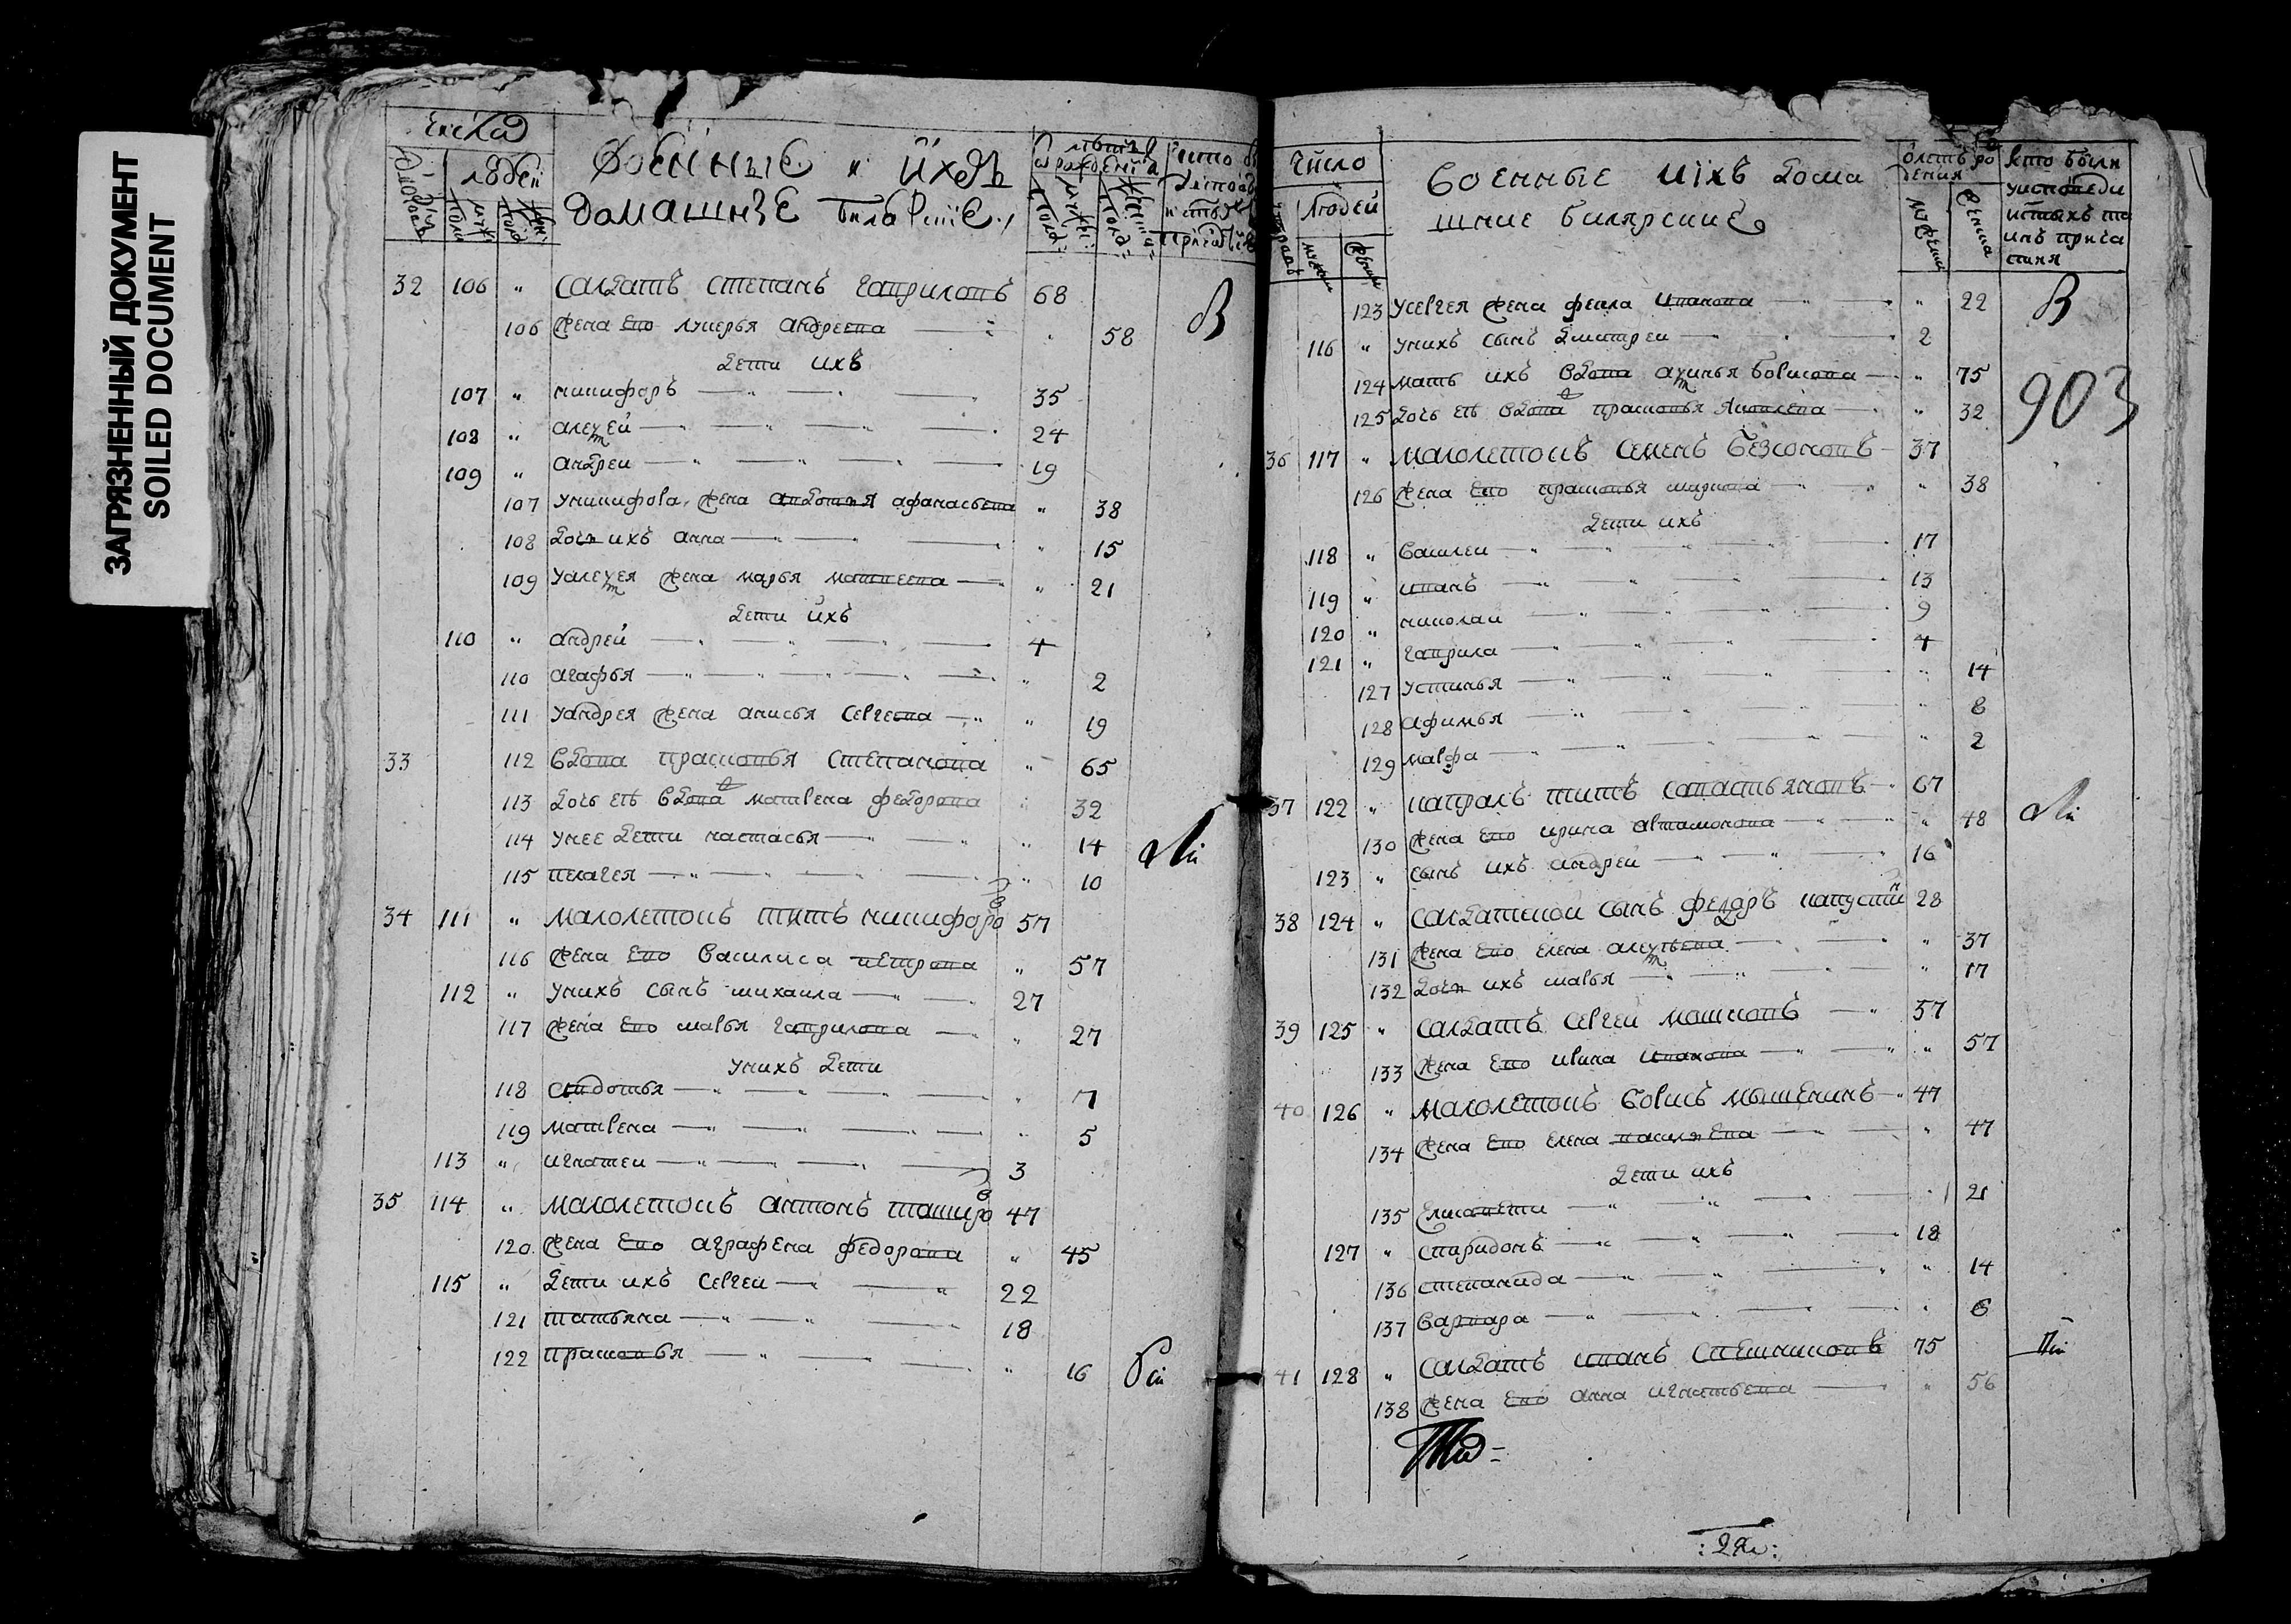 ЗАГРЯЗНЕННЫЙ ДОКУМЕНТ
SOILED DOCUMENT
Число
людей
Военные и ихъ
домашние билярские
32 106 " салдатъ степанъ гавриловъ 68
106 жена ево лукерья андреева " 58
дети ихъ
107 " никифоръ 35
108 " алеѯей 24
109 " андреи 19
107 уникифора жена авдотья афанасьева " 38
108 дочь ихъ анна " 15
109 уалеѯея жена марья матвеева " 21
дети ихъ
110 " андрей 4
110 агафья " 2
111 уандрея жена анисья сергеева " 19
33 112 вдова прасковья степанова " 65
113 дочь ея вдова матрена федорова " 32
114 унее дети настасья " 14
115 пелагея " 10
34 111 " малолетокъ титъ никифоровъ 57
116 жена ево василиса петрова " 57
112 " унихъ сынъ михаила 27
117 жена ево марья гаврилова " 27
унихъ дети
118 авдотья " 7
119 матрена " 5
113 " игнатеи 3
35 114 " малолетокъ антонъ 47
120 жена ево аграфена федорова " 45
115 " дети ихъ сергеи 22
121 татьяна 18
122 прасковья " 16
Число
людей
военные ихъ дома
шние билярские
олетъ ро
дения
кто были
уисповеди
истыхъ та
инъ прича
стия
123 усергея жена фекла иванова " 22
116 " унихъ сынъ дмитреи 2
124 мать ихъ вдова акилья борисова " 75
125 дочь ея вдова прасковья яковлева " 32
903
36 117 " малолетокъ семенъ безсоновъ 37
126 жена ево прасковья маркова " 38
дети ихъ
118 " василеи 17
119 " иванъ 13
120 " николаи 9
121 " гаврила 4
127 устинья " 14
128 афимья " 8
129 марфа " 2
37 122 " капралъ титъ савастьяновъ 67
130 жена ево ирина артамонова " 48
123 " сынъ ихъ андреи 16
38 124 " салдатской сынъ федоръ капустин 28
131 жена ево елена алеѯѣева " 37
132 дочь ихъ марья " 17
39 125 " салдатъ сергеи 57
133 жена ево ирина иванова " 57
40 126 " малолетокъ борисъ мышенинъ 47
134 жена ево елена " 47
дети ихъ
135 елисавети " 21
127 " спиридонъ 18
136 степанида " 14
137 варвара " 6
41 128 " салдатъ иванъ 75
138 жена ево анна игнатьева " 56